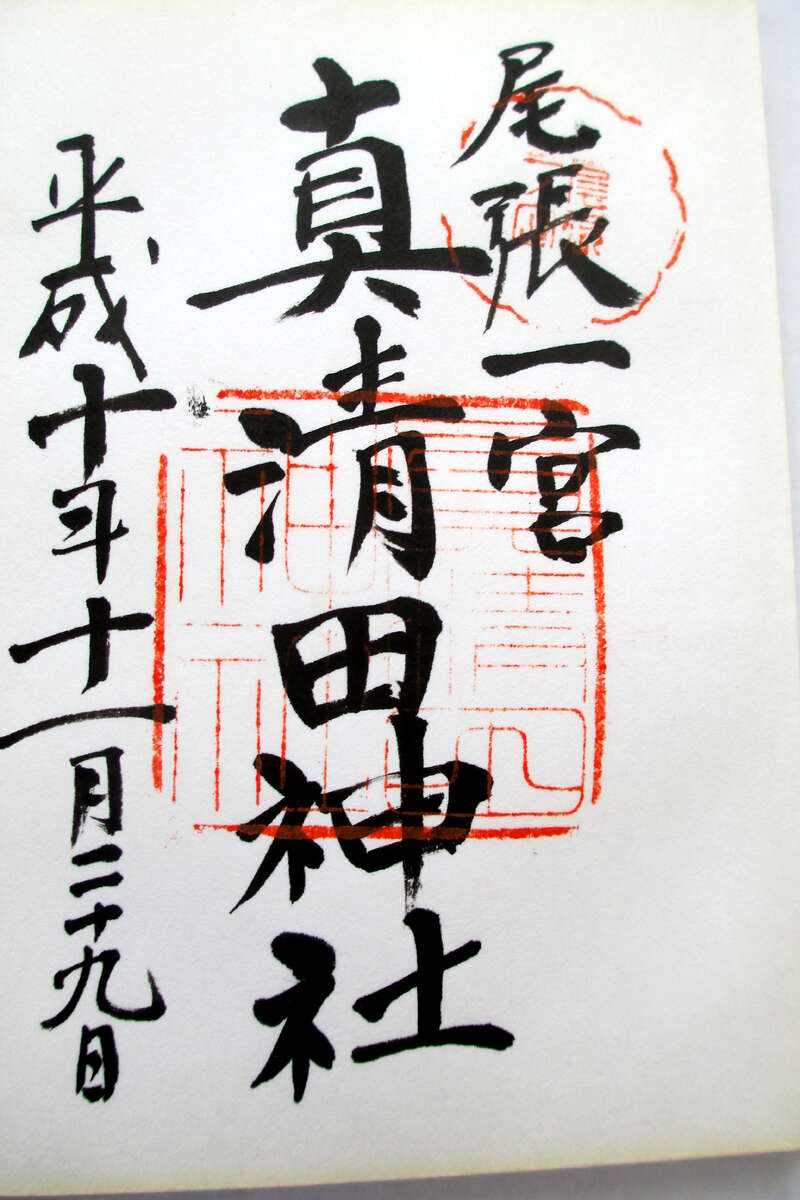 尾張一宮
真清田神社
平成十年十一月二十九日